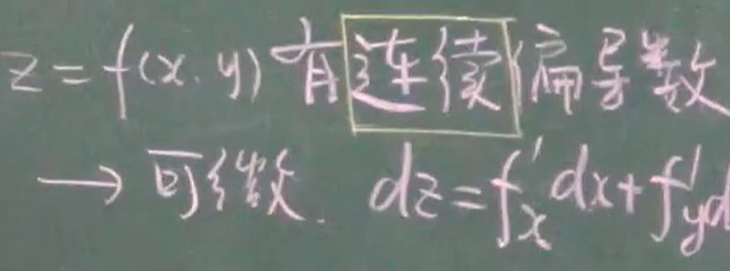 z=f(x.y)有连续偏导数
→可微. dz=f'ₓdx+f'ᵧd